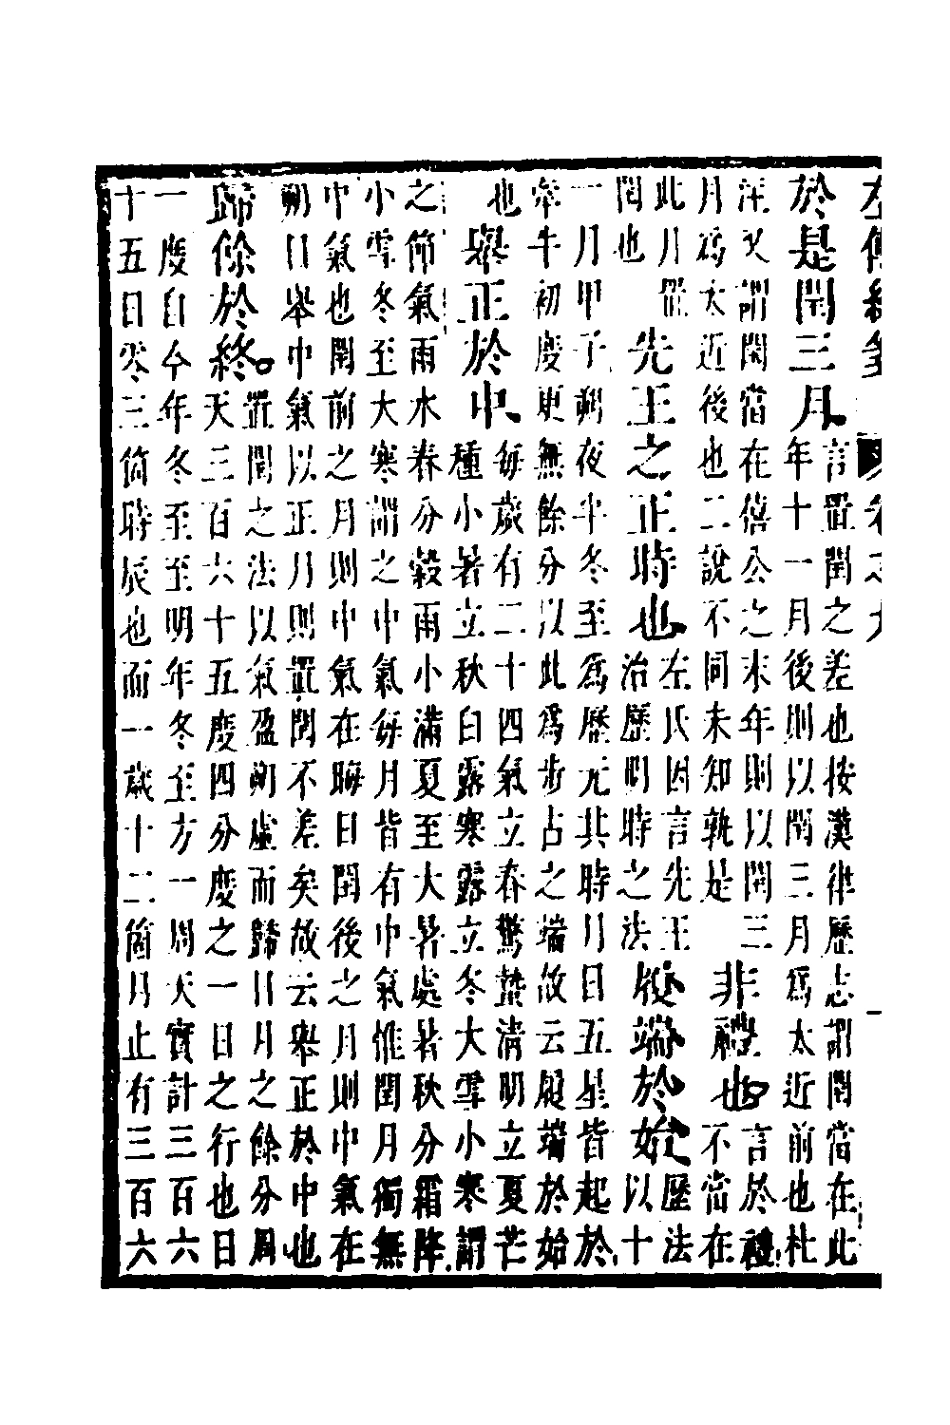 於是閏三月言置閏之差也按漢律歷志謂閏當在此
年十一月後則以閏三月為太近前也杜
注又謂閏當在僖公之末年則以閏三
月為太近後也二說不同未知孰是
非禮也言於禮
不當在
此月置
閏也
先王之正時也左氏因言先王
治歷明時之法
履端於始歷法
以十
一月甲子朔夜半冬至為歷元其時月日五星皆起於
牽牛初度更無餘分以此為步占之端故云履端於始
也
舉正於中每歲有二十四氣立春驚蟄清明立夏芒
種小暑立秋白露寒露立冬大雪小寒謂
之節氣雨水春分穀雨小滿夏至大暑處暑秋分霜降
小雪冬至大寒謂之中氣每月皆有中氣惟閏月獨無
中氣也閏前之月則中氣在晦日閏後之月則中氣在
朔日舉中氣以正月則置閏不差矣故云舉正於中也
歸餘於終。置閏之法以氣盈朔虛而歸日月之餘分周
天三百六十五度四分度之一日之行也日
一度自今年冬至至明年冬至方一周天實計三百六
十五日零三箇時辰也而一歲十二箇月止有三百六